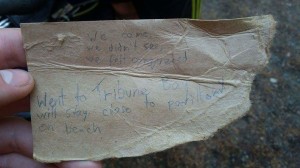 We came,
we didn't see,
we felt
Went to Tribune Bay
will stay close to
on beach